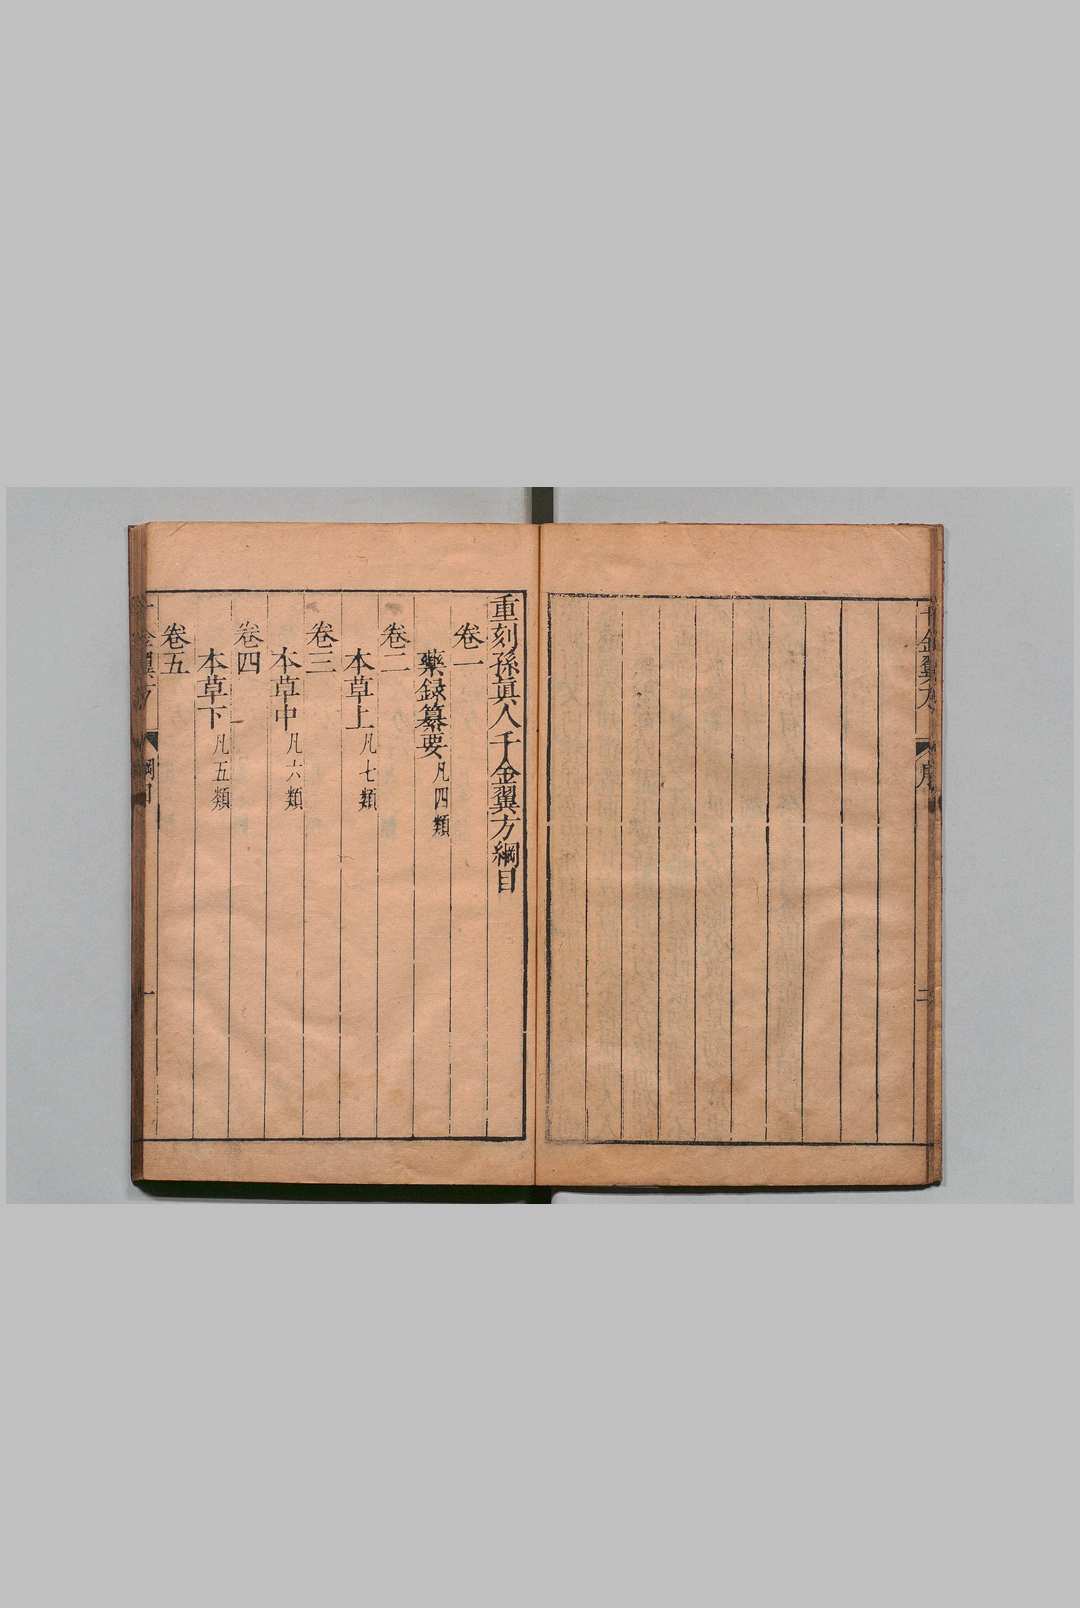 千金翼方 序 二
重刻孫眞人千金翼方綱目
卷一
藥録纂要凡四類
卷二
本草上凡七類
卷三
本草中凡六類
卷四
本草下凡五類
卷五
千金翼方 綱目 一